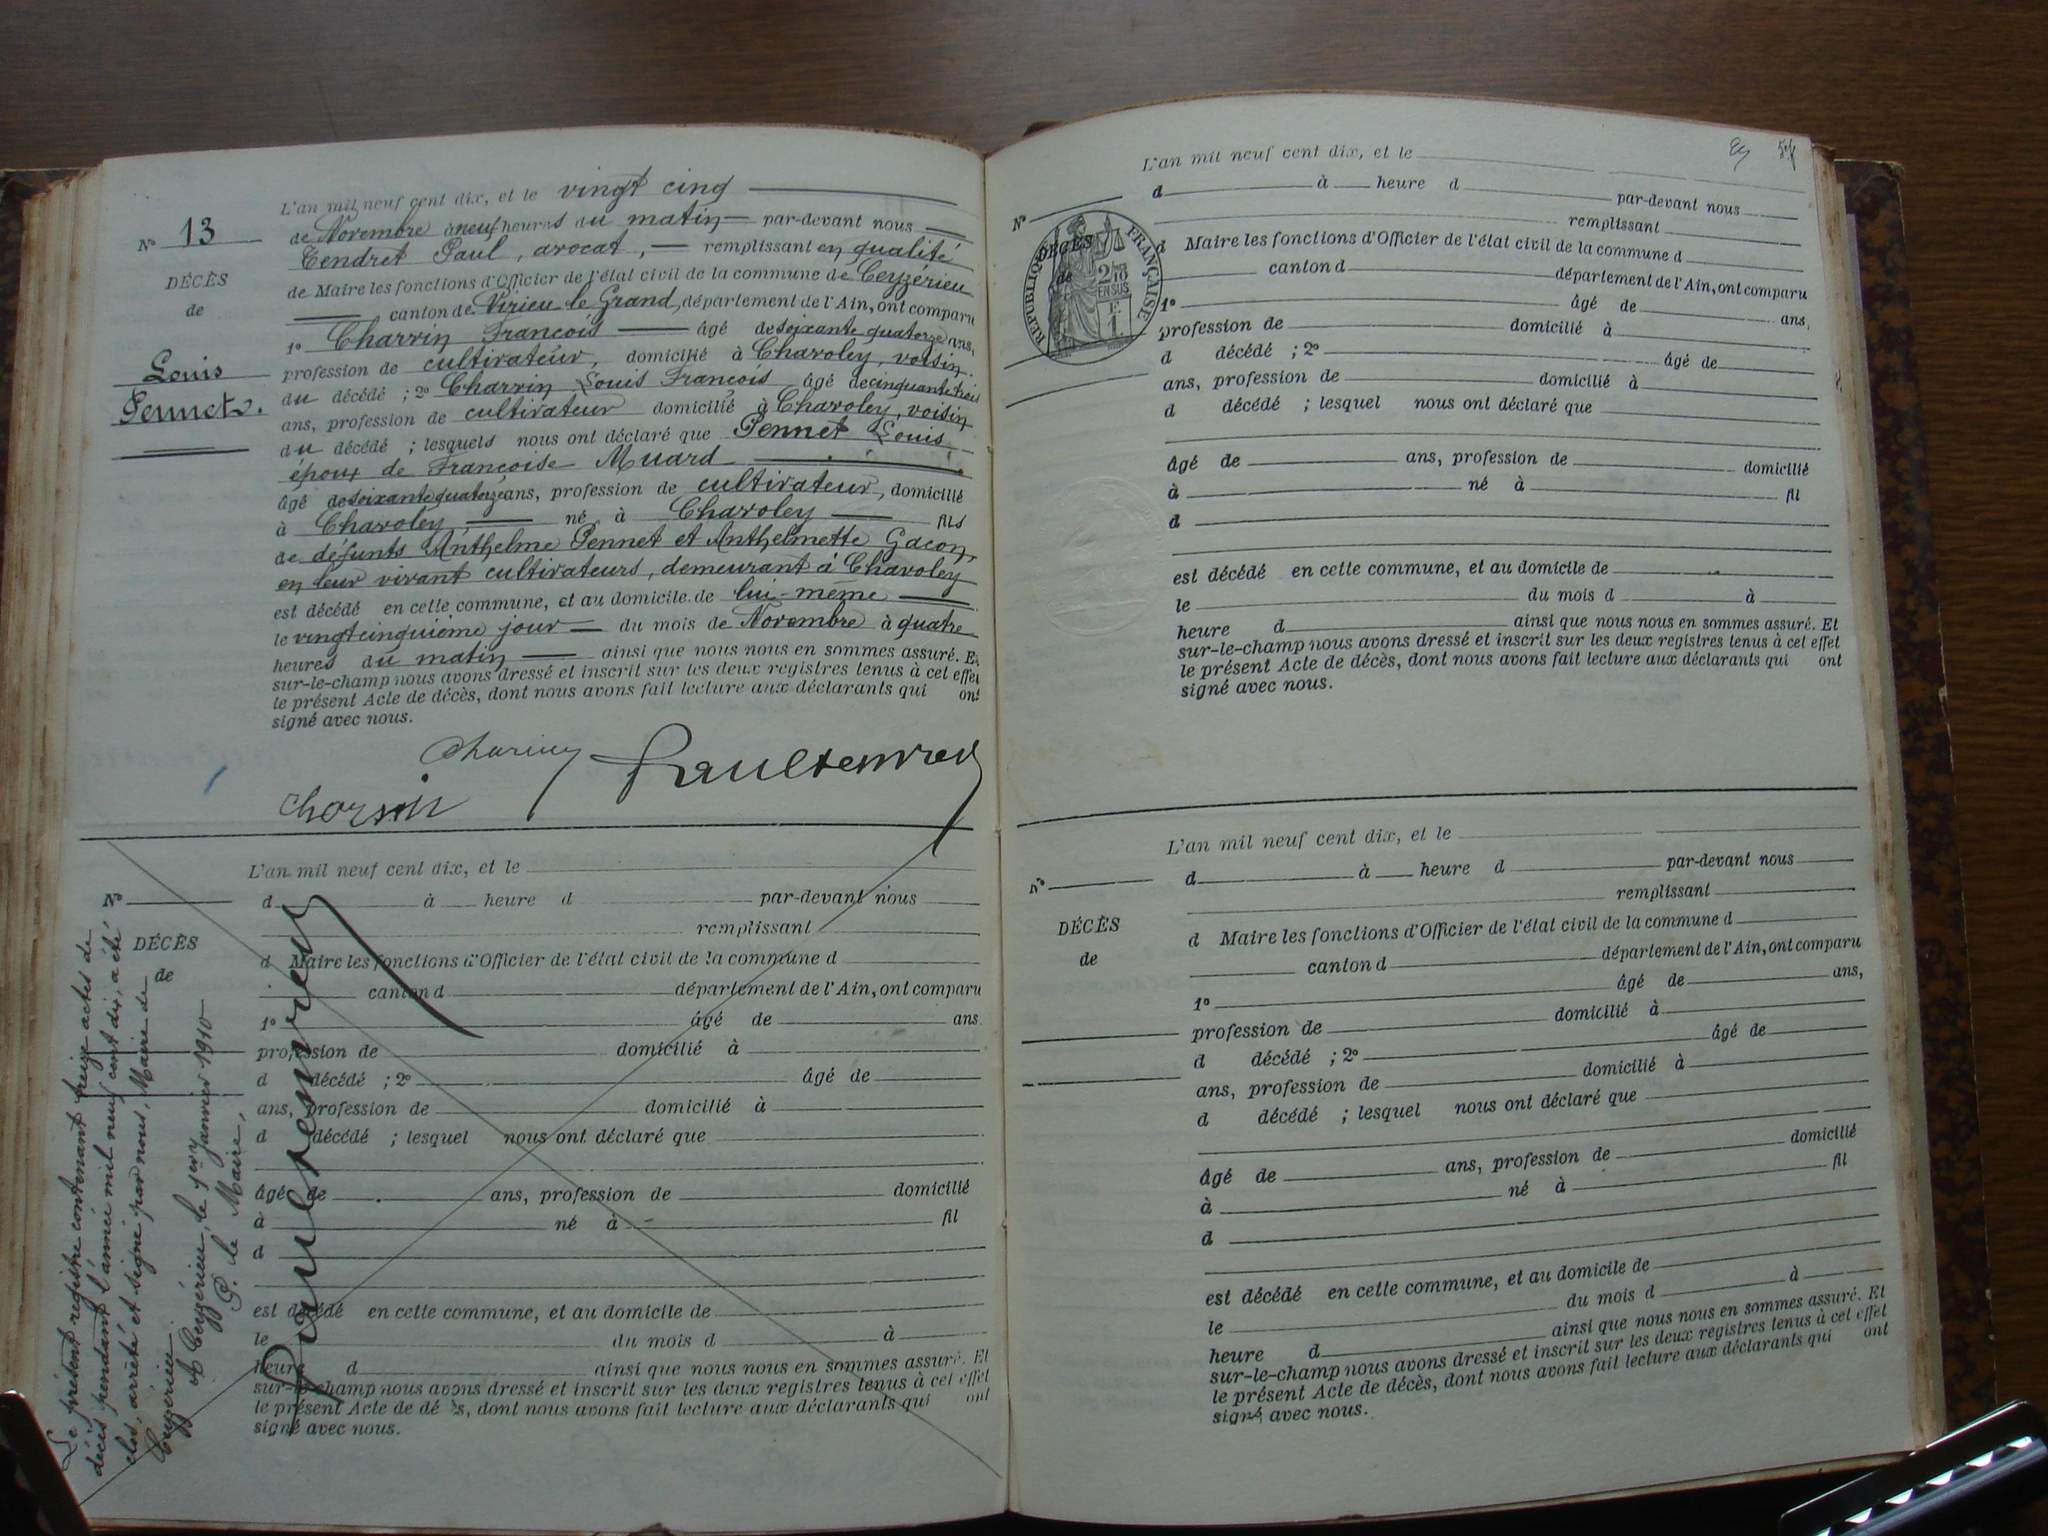 L'an mil neuf cent dix, et le vingt cinq
N° 13
de Novembre à neuf heures du matin par-devant nous
Tendret Paul, avocat, remplissant en qualité
DÉCÈS
de Maire les fonctions d'Officier de l'état civil de la commune de Ceyzérieu
de
canton de Virieu le Grand, département de l'Ain, ont comparu
1° Charvin François âgé de soixante quatorze ans,
Louis
profession de cultivateur, domicilié à Chavoley, voisin
Pennet
du décédé ; 2° Charvin Louis François âgé de cinquante trois
ans, profession de cultivateur domicilié à Chavoley, voisin
du décédé ; lesquels nous ont déclaré que Pennet Louis
époux de Françoise Muard
âgé de soixante quatorze ans, profession de cultivateur, domicilié
à Chavoley, né à Chavoley fils
de défunts Anthelme Pennet et Anthelmette Gacon,
en leur vivant cultivateurs, demeurant à Chavoley
est décédé en cette commune, et au domicile de lui-même
le vingt cinquième jour du mois de Novembre à quatre
heures du matin ainsi que nous nous en sommes assuré. Et
sur-le-champ nous avons dressé et inscrit sur les deux registres tenus à cet effet
le présent Acte de décès, dont nous avons fait lecture aux déclarants qui ont
signé avec nous.
Charvin Paul Tendret
Charvin
L'an mil neuf cent dix, et le
N°
d à heure d par-devant nous
remplissant
DÉCÈS
d Maire les fonctions d'Officier de l'état civil de la commune d
de
canton d département de l'Ain, ont comparu
1° âgé de ans
profession de domicilié à
d décédé ; 2° âgé de
ans, profession de domicilié à
d décédé ; lesquel nous ont déclaré que
âgé de ans, profession de domicilié
à né à fil
d
est décédé en cette commune, et au domicile de
le du mois d à
heure d ainsi que nous nous en sommes assuré. Et
sur-le-champ nous avons dressé et inscrit sur les deux registres tenus à cet effet
le présent Acte de décès, dont nous avons fait lecture aux déclarants qui ont
signé avec nous.
Le présent registre contenant treize actes de
décès pendant l'année mil neuf cent dix, a été
clos, arrêté et signé par nous, Maire de
Ceyzérieu.
A Ceyzérieu, le 1er Janvier 1910
P. le Maire,
Paul Tendret
L'an mil neuf cent dix, et le
N°
d à heure d par-devant nous
remplissant
DÉCÈS
de
RÉPUBLIQUE FRANÇAISE
2 DES 10
EN SUS
d Maire les fonctions d'Officier de l'état civil de la commune d
canton d département de l'Ain, ont comparu
1° âgé de ans,
profession de domicilié à
d décédé ; 2° âgé de
ans, profession de domicilié à
d décédé ; lesquel nous ont déclaré que
âgé de ans, profession de domicilié
à né à fil
d
est décédé en cette commune, et au domicile de
le du mois d à
heure d ainsi que nous nous en sommes assuré. Et
sur-le-champ nous avons dressé et inscrit sur les deux registres tenus à cet effet
le présent Acte de décès, dont nous avons fait lecture aux déclarants qui ont
signé avec nous.
L'an mil neuf cent dix, et le
N°
d à heure d par-devant nous
remplissant
DÉCÈS
d Maire les fonctions d'Officier de l'état civil de la commune d
de
canton d département de l'Ain, ont comparu
1° âgé de ans,
profession de domicilié à
d décédé ; 2° âgé de
ans, profession de domicilié à
d décédé ; lesquel nous ont déclaré que
âgé de ans, profession de domicilié
à né à fil
d
est décédé en cette commune, et au domicile de
le du mois d à
heure d ainsi que nous nous en sommes assuré. Et
sur-le-champ nous avons dressé et inscrit sur les deux registres tenus à cet effet
le présent Acte de décès, dont nous avons fait lecture aux déclarants qui ont
signé avec nous.